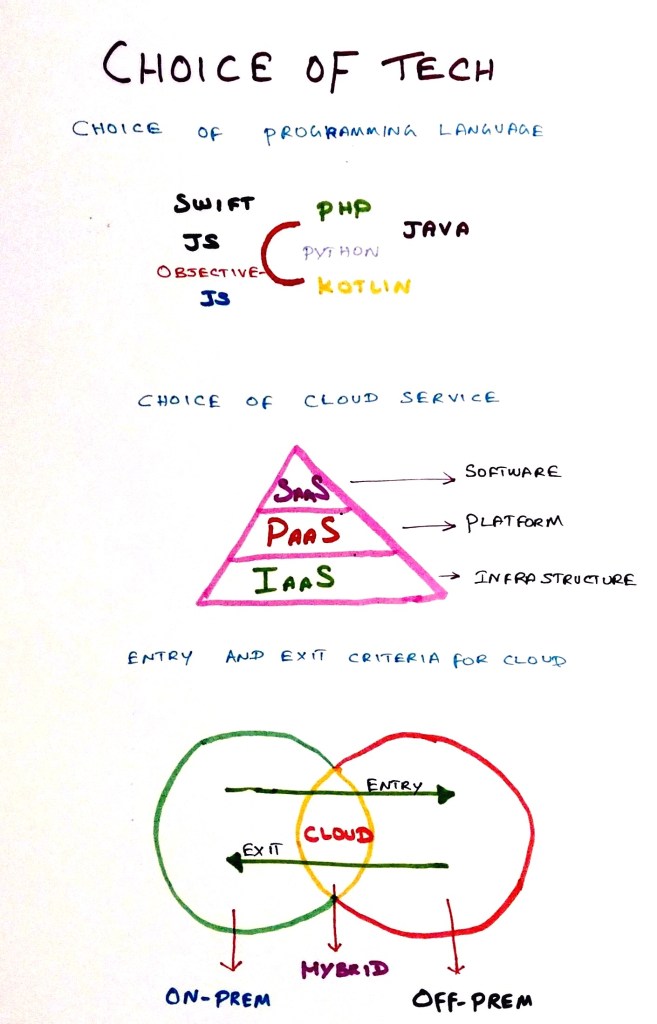 CHOICE OF TECH
CHOICE OF PROGRAMMING LANGUAGE
SWIFT
PHP
JAVA
JS
PYTHON
OBJECTIVE-C
KOTLIN
JS
CHOICE OF CLOUD SERVICE
SAAS
SOFTWARE
PAAS
PLATFORM
IAAS
INFRASTRUCTURE
ENTRY AND EXIT CRITERIA FOR CLOUD
ENTRY
CLOUD
EXIT
HYBRID
ON-PREM
OFF-PREM